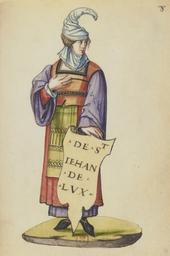 · DE · Sᵀ
IEHAN
· DE ·
· LVX ·